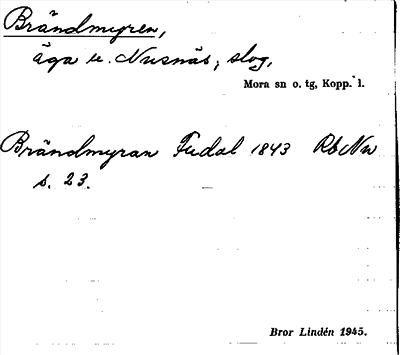 Brändmyren,
äga u. Nusnäs, slog.
Mora sn o. tg, Kopp. l.
Brändmyran Fudal 1843 Rb Nw
s. 23.
Bror Lindén 1945.